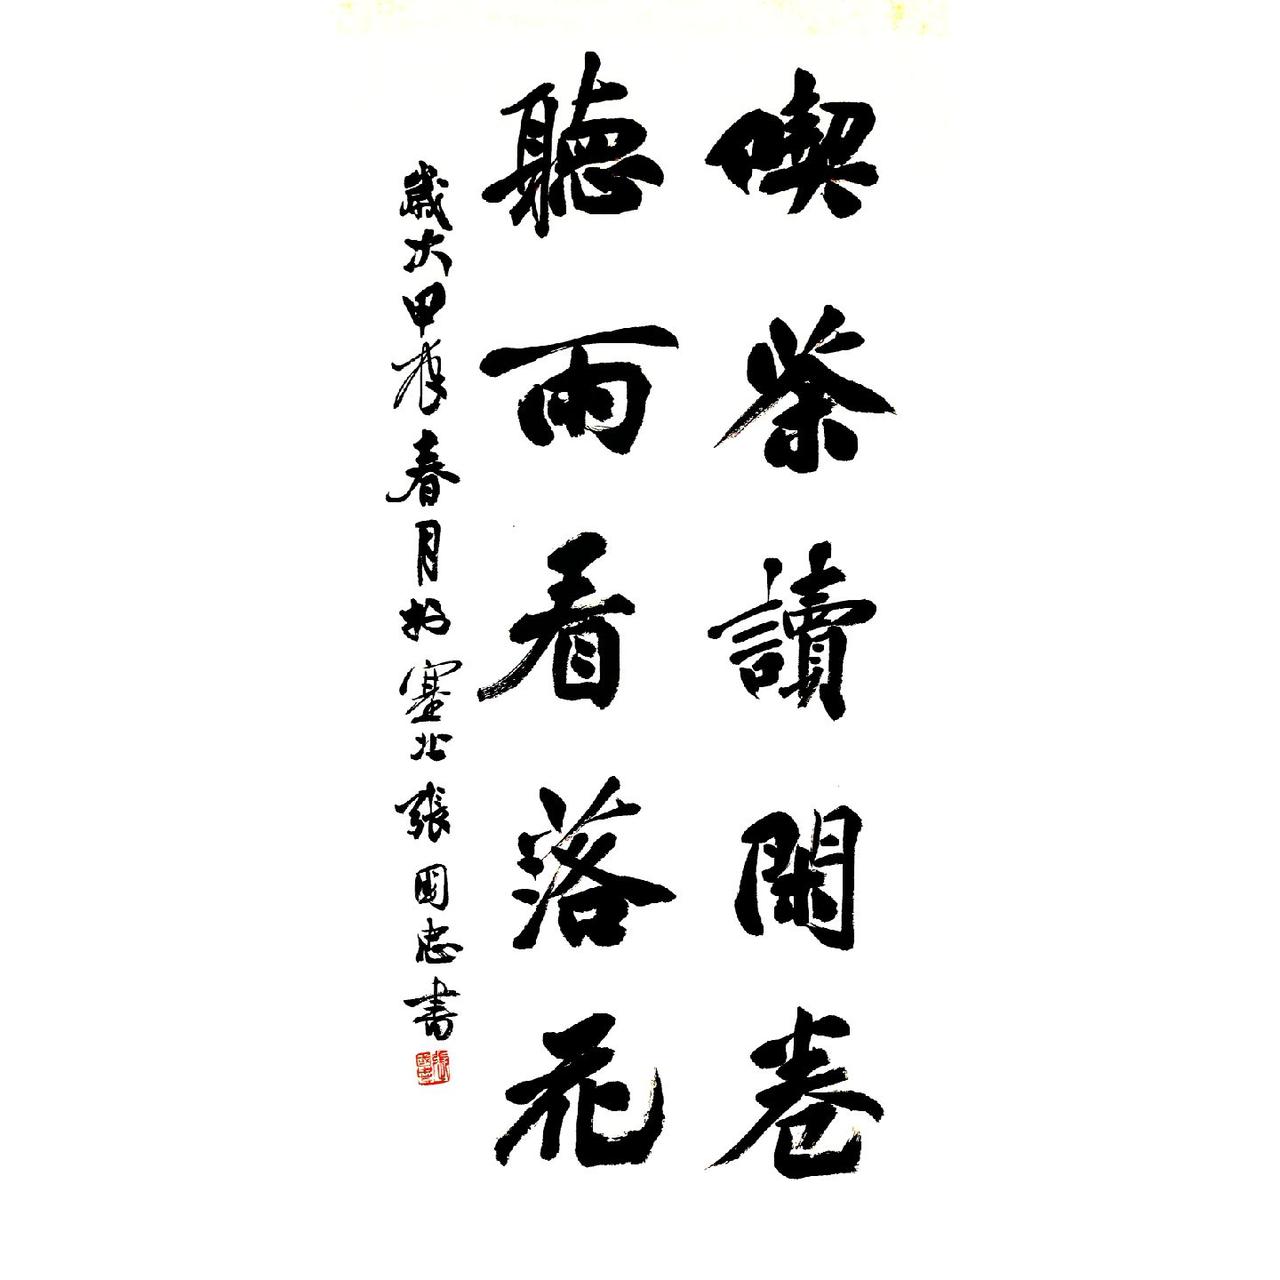 喫茶讀閑卷
聽雨看落花
歲次甲春月於塞北張國忠書
張國忠